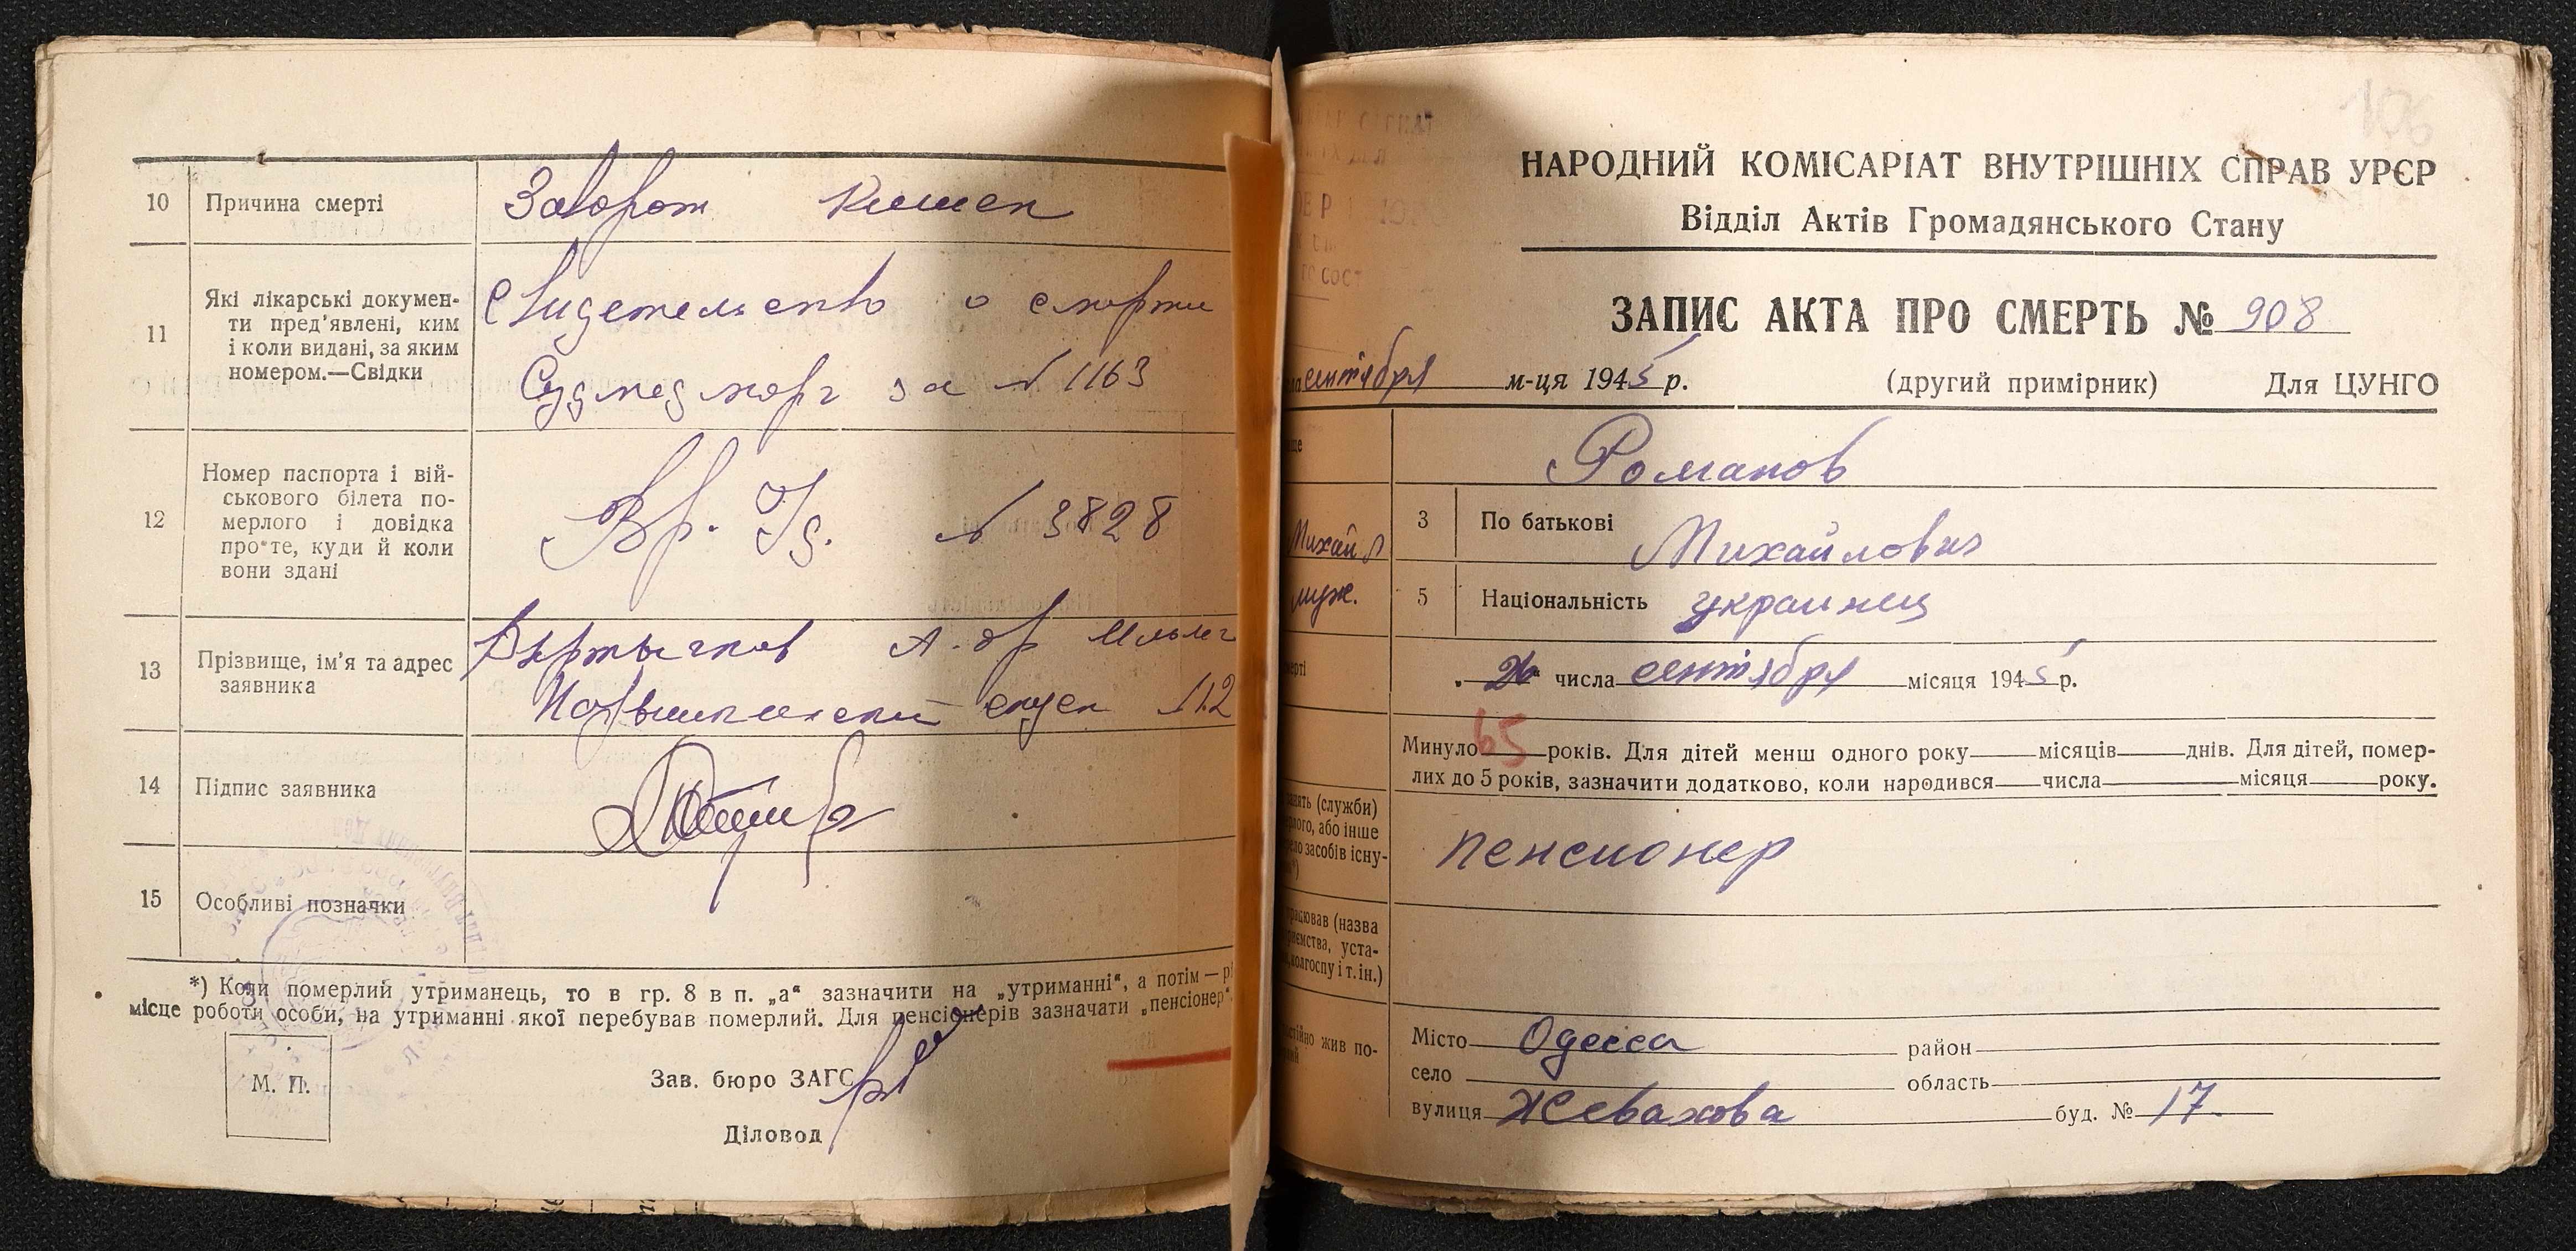 10 Причина смерті Заворот кишек
11 Які лікарські докумен-
ти пред’явлені, ким
і коли видані, за яким
номером.—Свідки
Свидетельство о смерти
Судмедморг за № 1163
12 Номер паспорта і вій-
ськового білета по-
мерлого і довідка
про те, куди й коли
вони здані
Вр. Уд. № 3828
13 Прізвище, ім’я та адрес
заявника
А.
спуск № 12
14 Підпис заявника
15 Особливі позначки
*) Коли померлий утриманець, то в гр. 8 в п. „а“ зазначити на „утриманні“, а потім —
місце роботи особи, на утриманні якої перебував померлий. Для пенсіонерів зазначати „пенсіонер“.
М. П.
Зав. бюро ЗАГС
Діловод
106
НАРОДНИЙ КОМІСАРІАТ ВНУТРІШНІХ СПРАВ УРСР
Відділ Актів Громадянського Стану
ЗАПИС АКТА ПРО СМЕРТЬ № 908
сентября м-ця 1945 р. (другий примірник) Для ЦУНГО
Романов
Михаил 3 По батькові Михайлович
муж. 5 Національність украинец
26 числа сентября місяця 1945 р.
Минуло 65 років. Для дітей менш одного року місяців днів. Для дітей, помер-
лих до 5 років, зазначити додатково, коли народився числа місяця року.
(служби)
або інше
засобів існу-
пенсионер
(назва
уста-
колгоспу і т. ін.)
жив по-
Місто Одесса район
село область
вулиця Жевахова буд. № 17